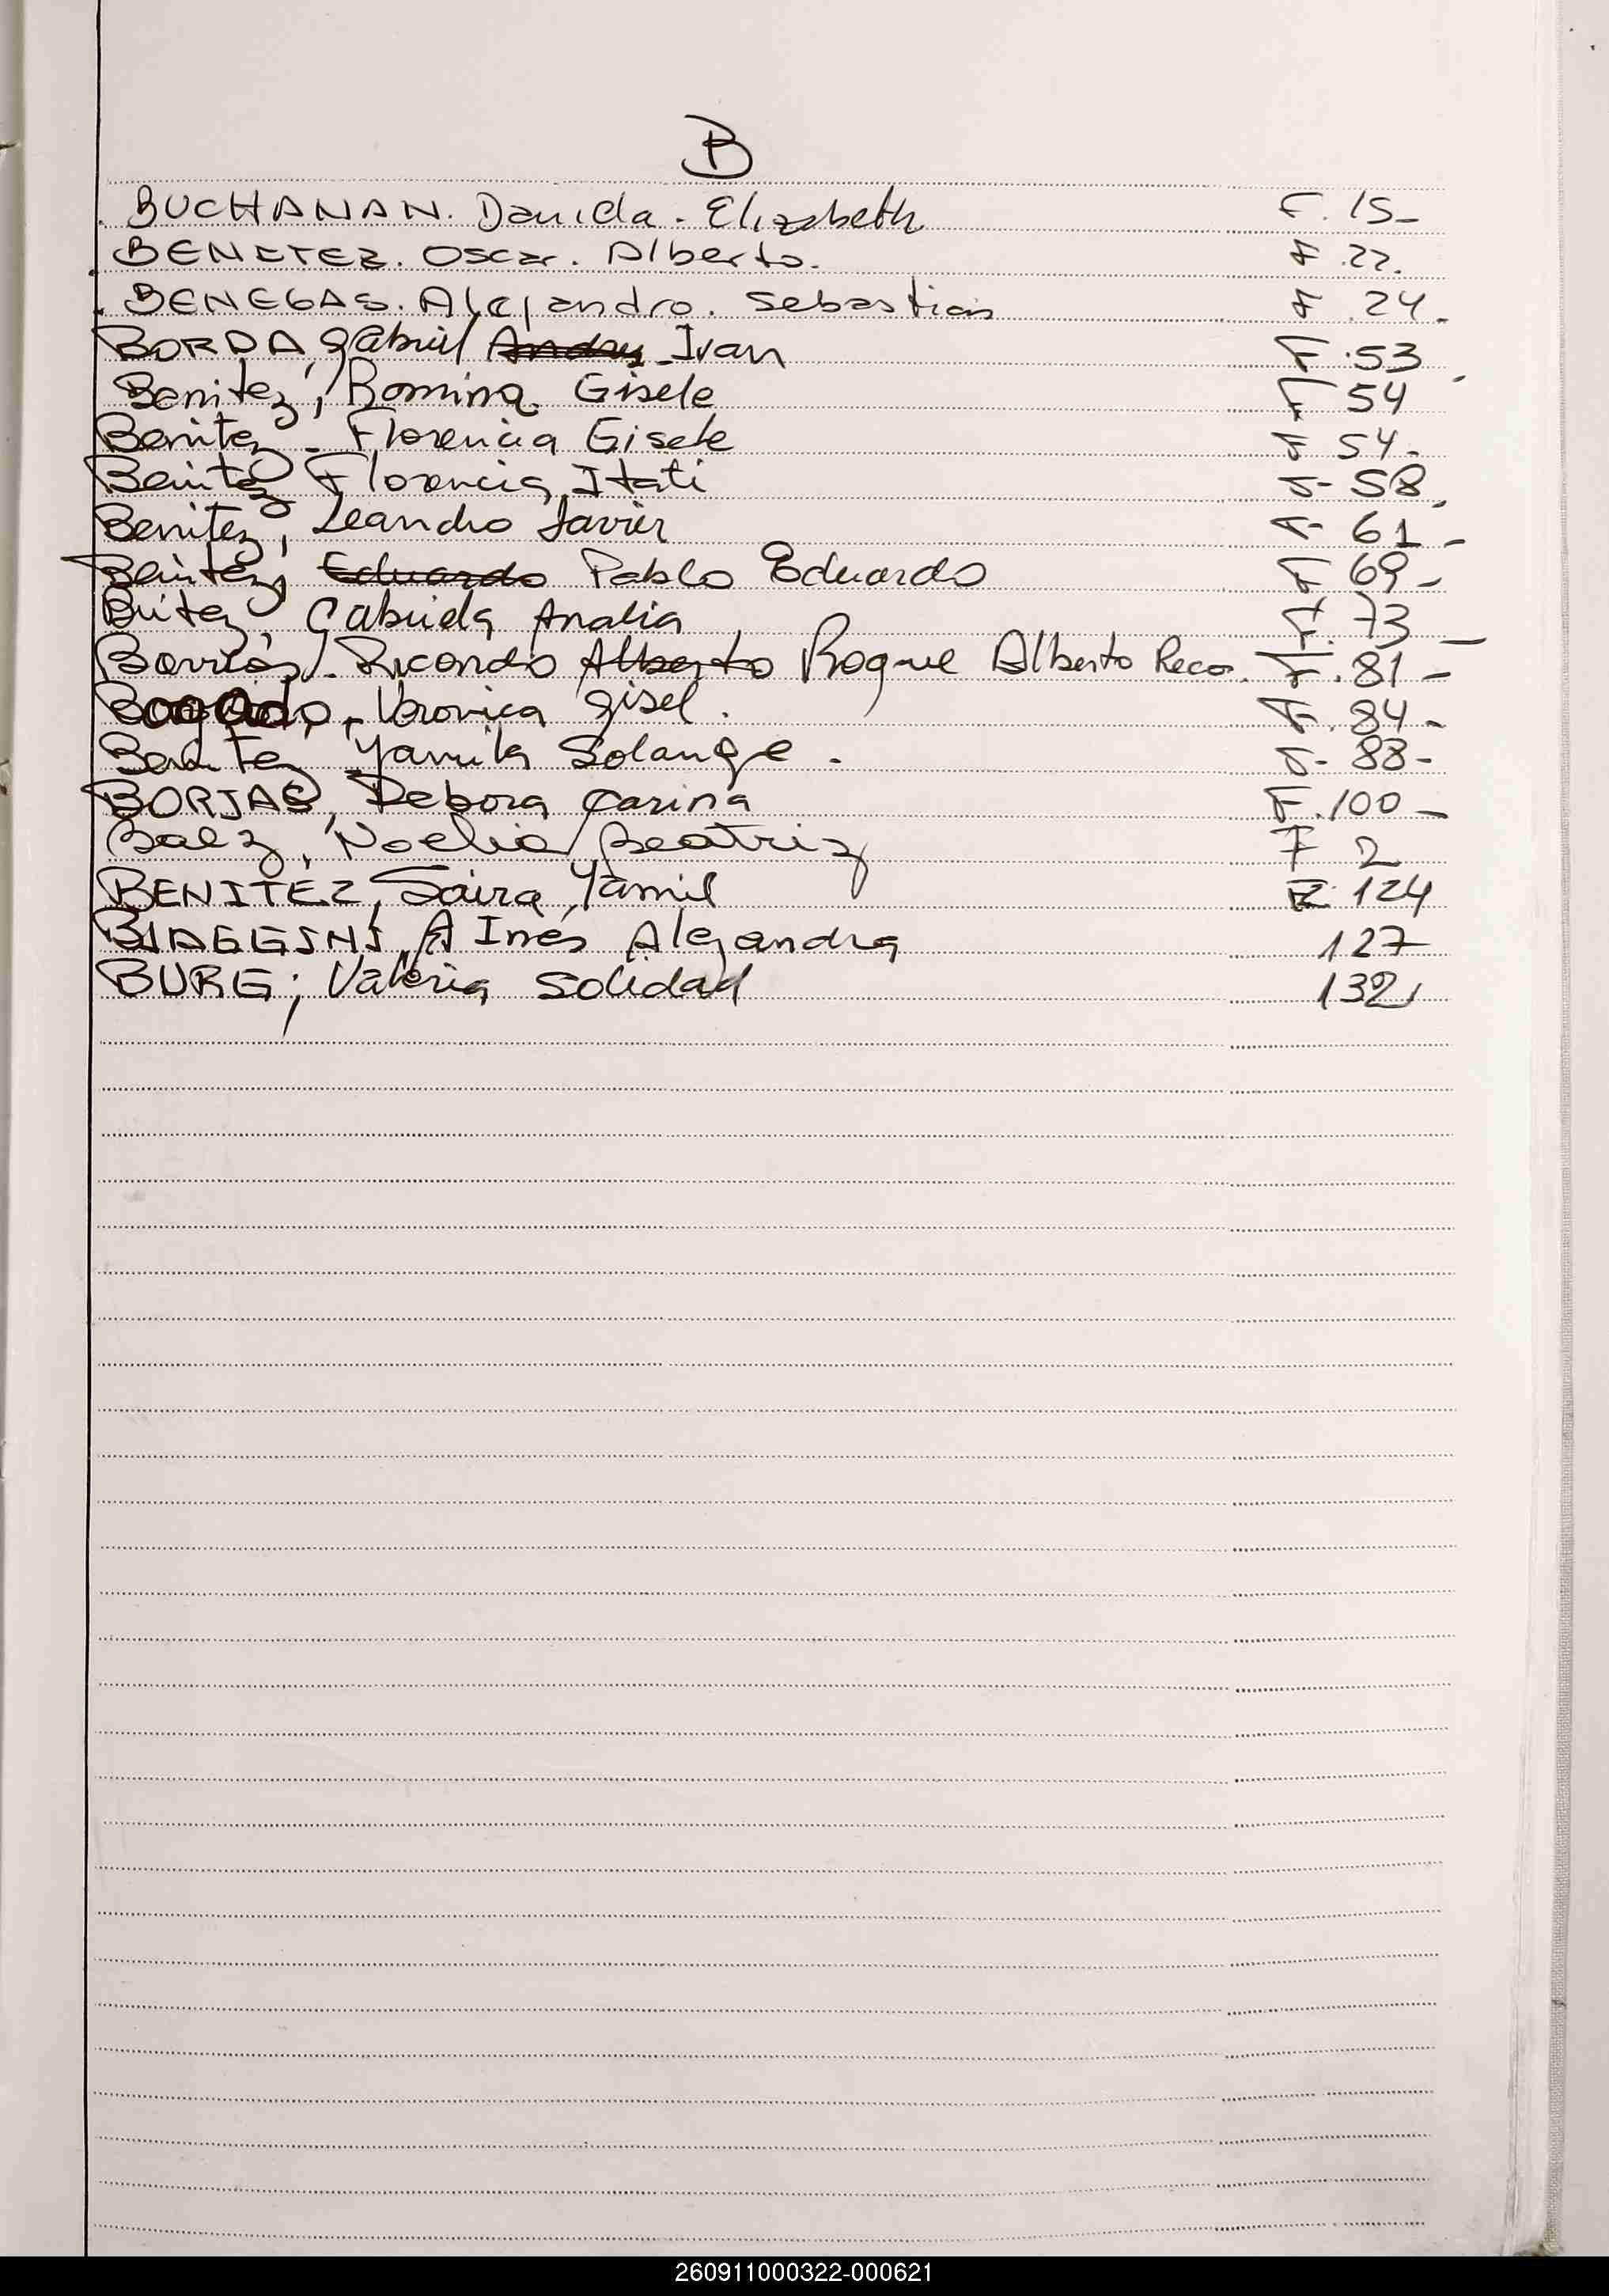 B
BUCHANAN. Daniela. Elizabeth F. 15-
BENITEZ. Oscar. Alberto. F. 22.
BENEGAS. Alejandro. Sebastian F. 24.
BORDA, Gabriel Andres Ivan F. 53
Benitez, Romina Gisele F 54
Benitez - Florencia Gisele F 54.
Benitez Florencia Itati F- 58
Benitez, Leandro Javier F- 61-
Benitez, Eduardo Pablo Eduardo F 69-
Britez, Gabriela Analia F. 73-
Barrios. Ricardo Alberto Roque Alberto Reco. F. 81-
Bogado, Veronica Gisel. F. 84-
Benitez Yamila Solange. F- 88-
BORJAS, Debora Carina F. 100-
Baez, Noelia Beatriz F 2
BENITEZ, Saira Yamil F 124
BIAGGINI, A Inés Alejandra 127
BURG; Valeria Soledad 132
260911000322-000621